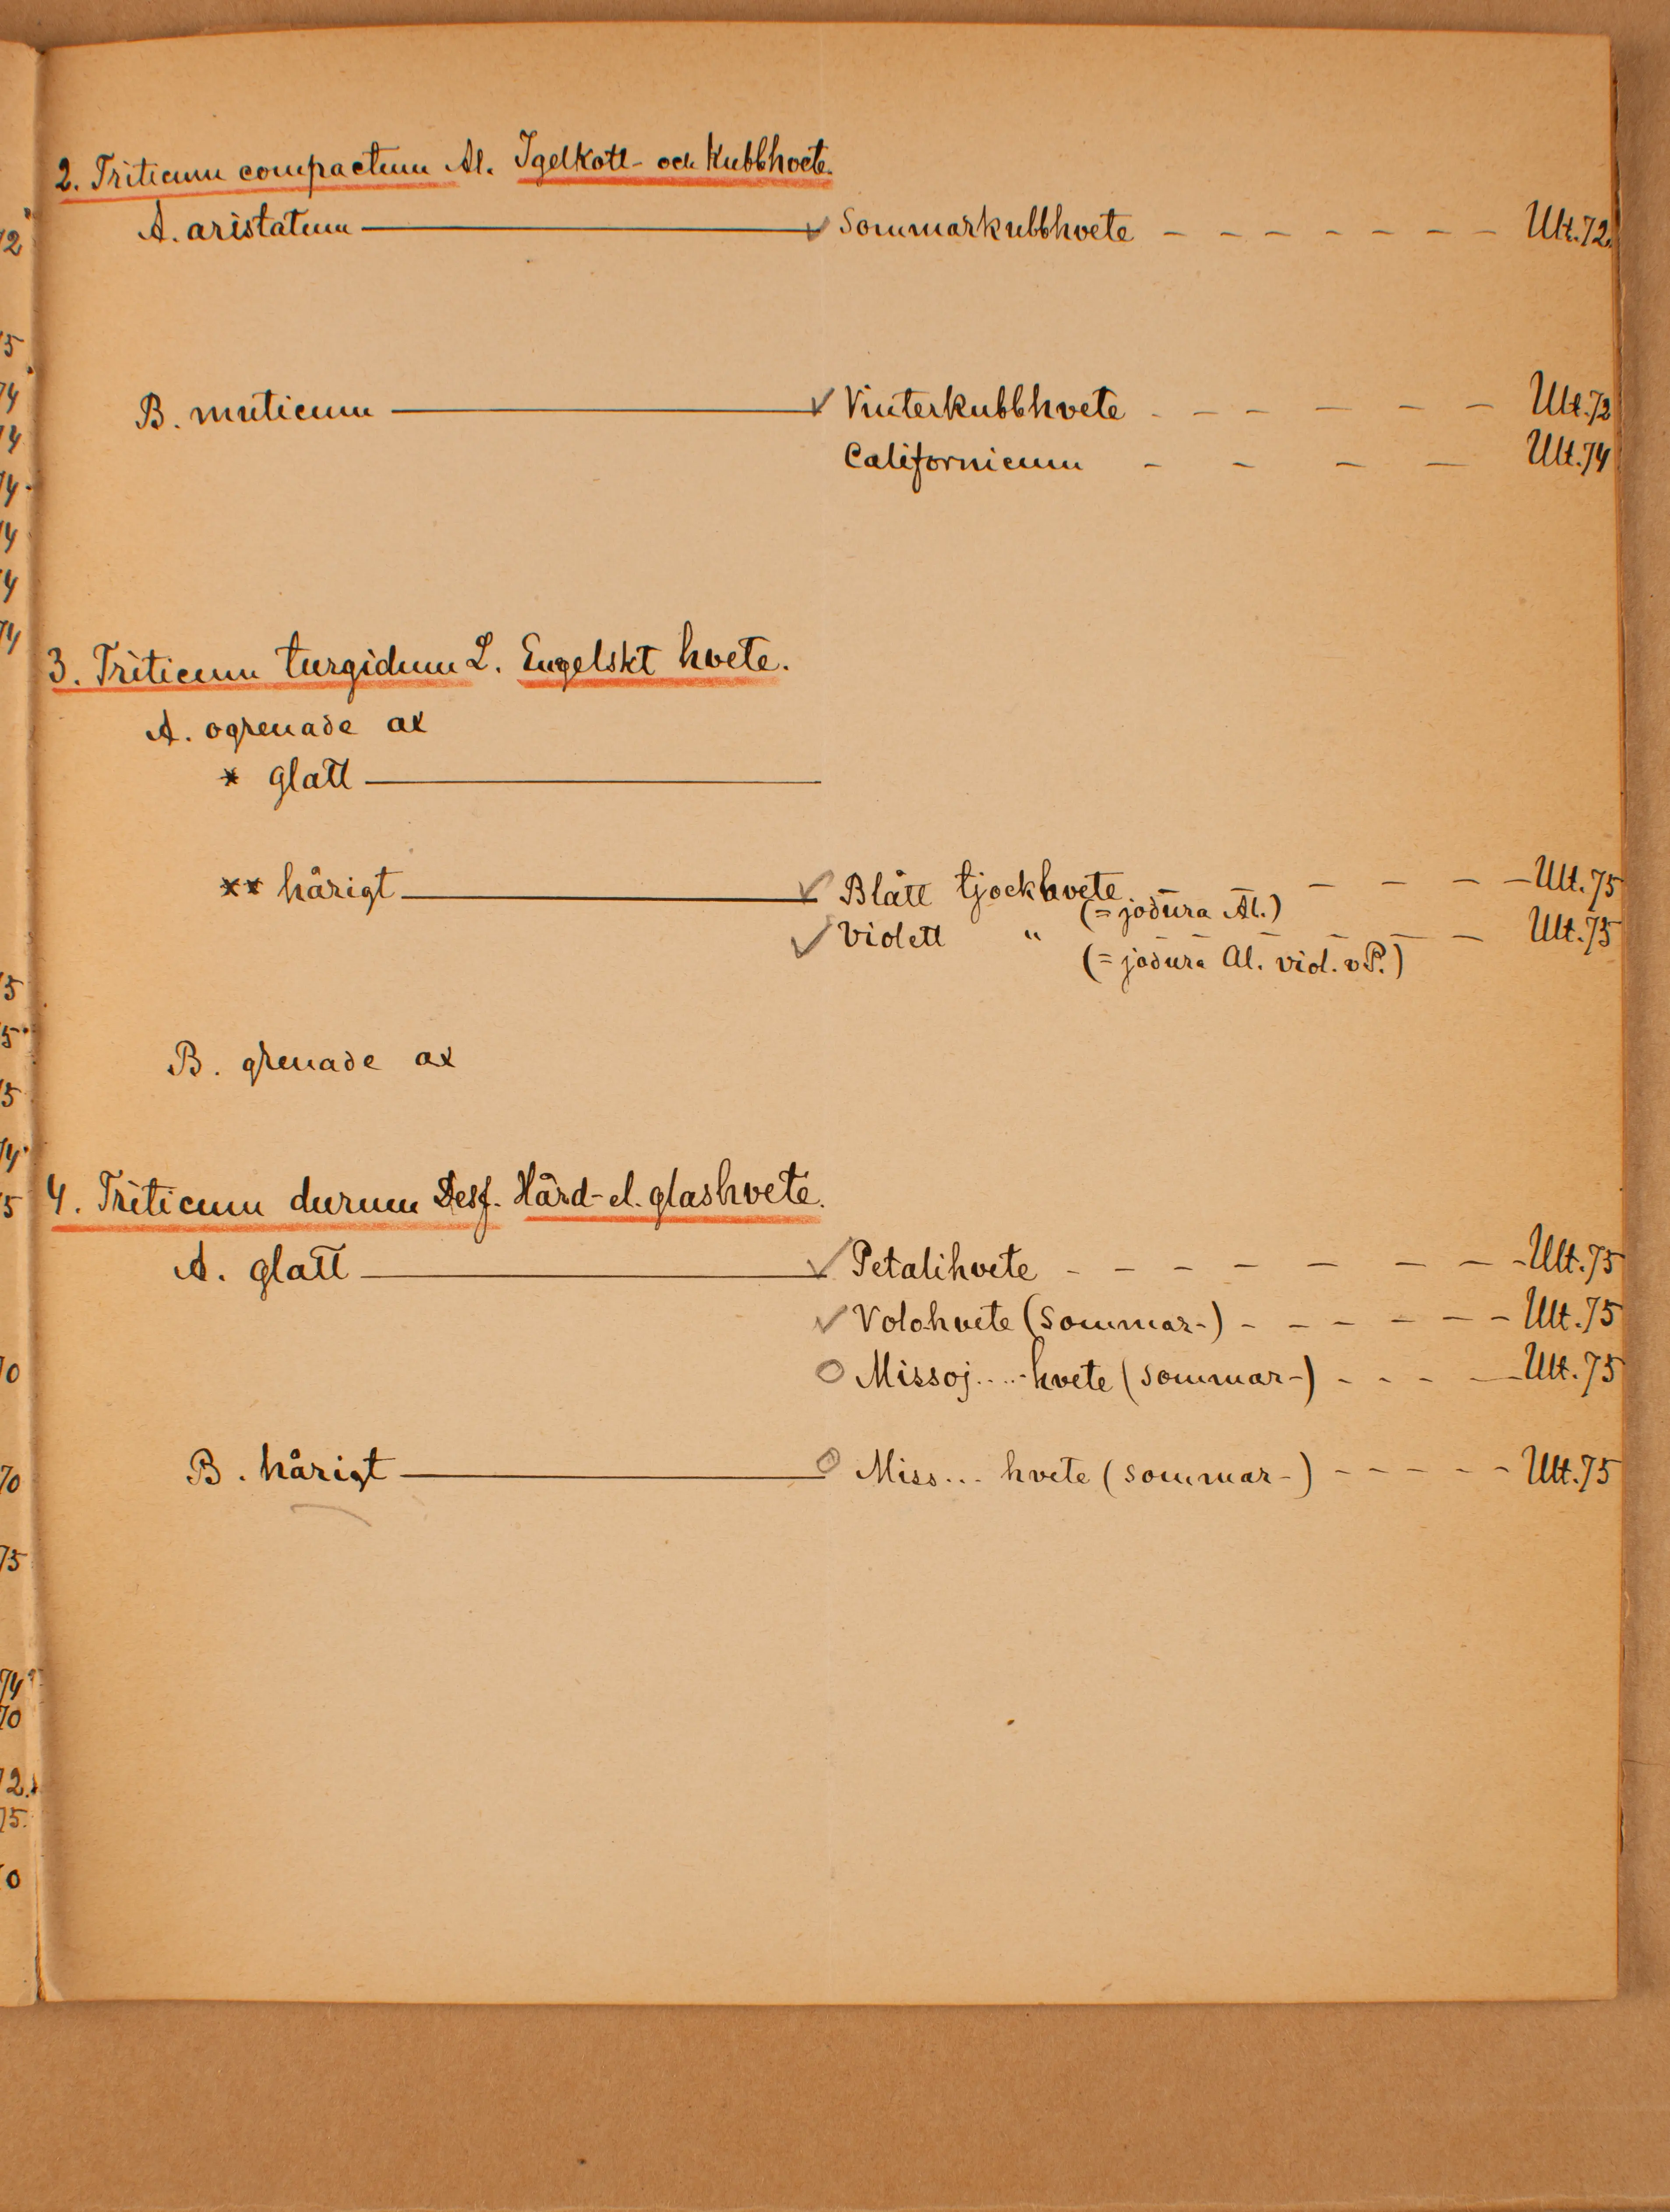 2. Triticum compactum Al. Igelkott- och Kubbhvete.
A. aristatum ✓ Sommarkubbhvete - - - - - - - - Ult. 72.
B. muticum ✓ Vinterkubbhvete - - - - - - Ult. 72
Californicum - - - - Ult. 74
3. Triticum turgidum L. Engelskt hvete.
A. ogrenade ax
* glatt
** hårigt ✓ Blått tjockhvete - - - - Ult. 75
(= jodura Al.)
✓ Violett " - - - Ult. 75
(= jodura Al. viol. v P.)
B. grenade ax
4. Triticum durum Desf. Hård- el. glashvete.
A. glatt ✓ Petalihvete - - - - - - - - Ult. 75
✓ Volohvete (sommar-) - - - - - - Ult. 75
O Missoj.....hvete (sommar-) - - - - Ult. 75
B. hårigt O Miss... hvete (sommar-) - - - - - Ult. 75